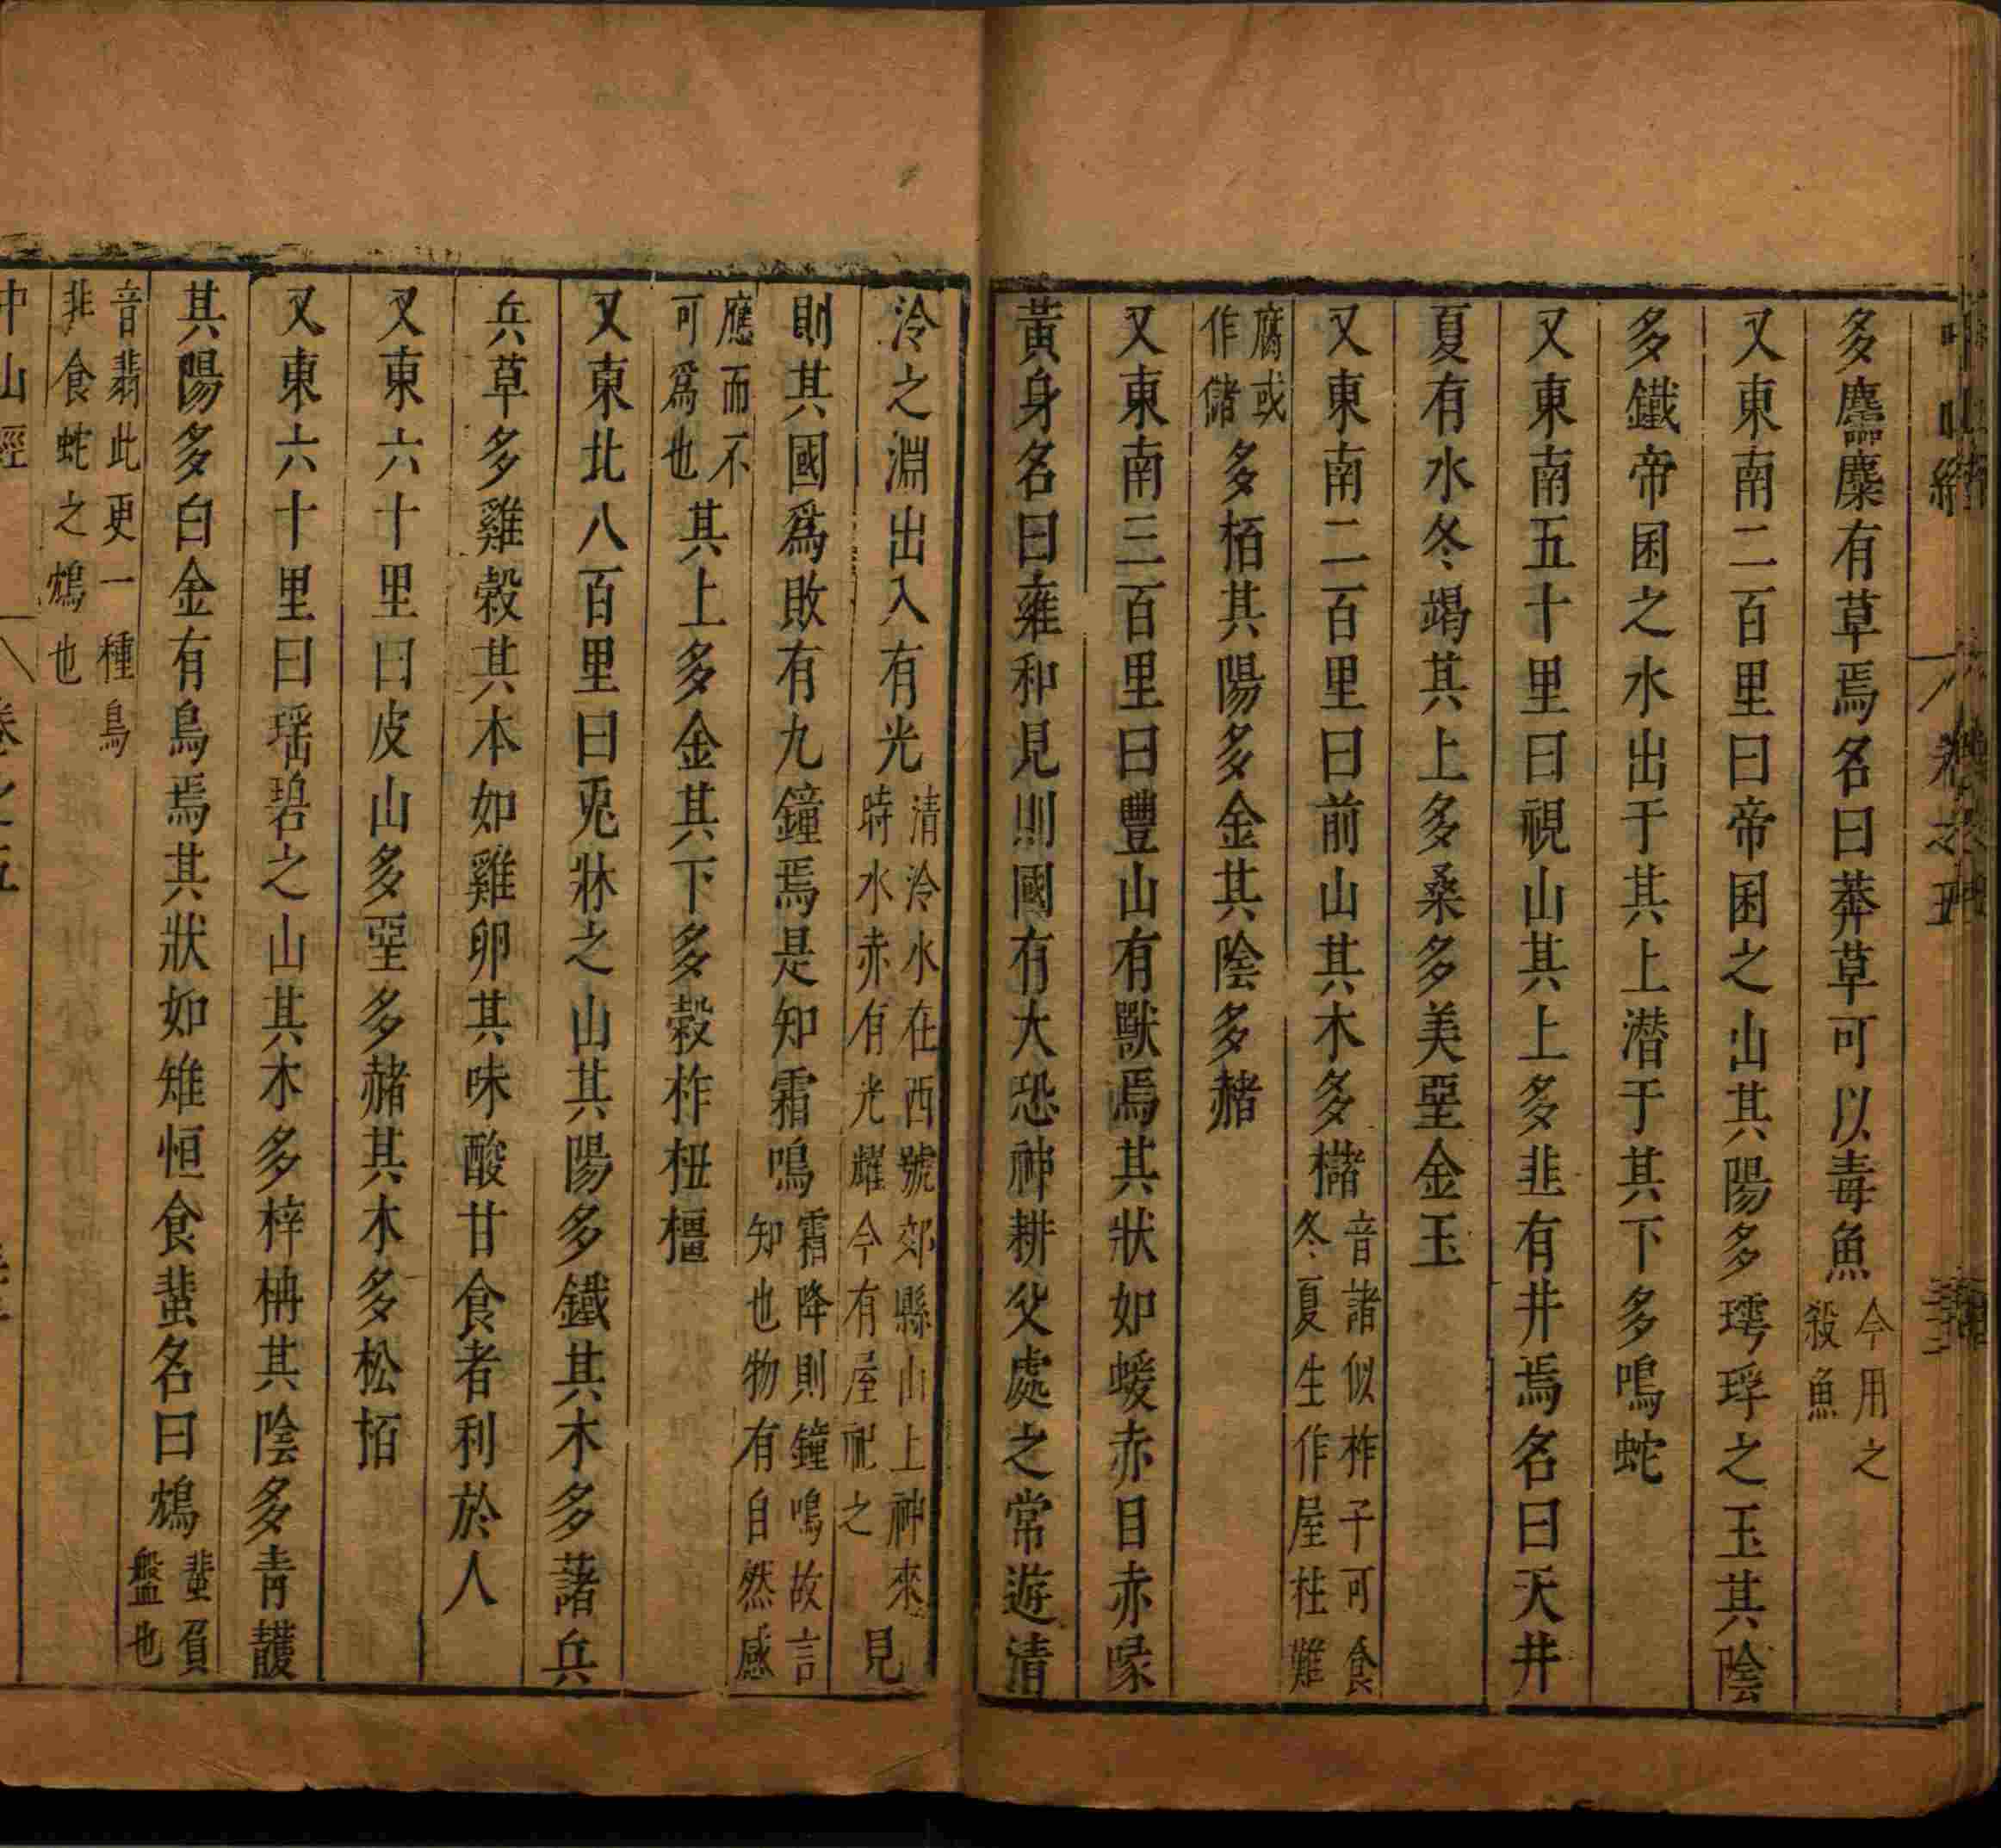 多麢麋有草焉名曰莽草可以毒魚今用之殺魚
又東南二百里曰帝囷之山其陽多㻬琈之玉其陰
多鐵帝囷之水出于其上潜于其下多鳴蛇
又東南五十里曰視山其上多韭有井焉名曰天井
夏有水冬竭其上多桑多美堊金玉
又東南二百里曰前山其木多櫧音諸似柞子可食冬夏生作屋柱難
腐或作儲多栢其陽多金其陰多赭
又東南三百里曰豐山有獸焉其狀如蝯赤目赤喙
黃身名曰雍和見則國有大恐神耕父處之常遊清
泠之淵出入有光清泠水在西號郊縣山上神來時水赤有光耀今有屋祀之見
則其國為敗有九鐘焉是知霜鳴霜降則鐘鳴故言知也物有自然感
應而不可為也其上多金其下多榖柞杻橿
又東北八百里曰兎牀之山其陽多鐵其木多藷兵
兵草多雞榖其本如雞卵其味酸甘食者利於人
又東六十里曰皮山多堊多赭其木多松栢
又東六十里曰瑶碧之山其木多梓柟其陰多青䨼
其陽多白金有鳥焉其狀如雉恒食蜚名曰鴆蜚負盤也
音翡此更一種鳥非食蛇之鴆也
中山經 卷之五